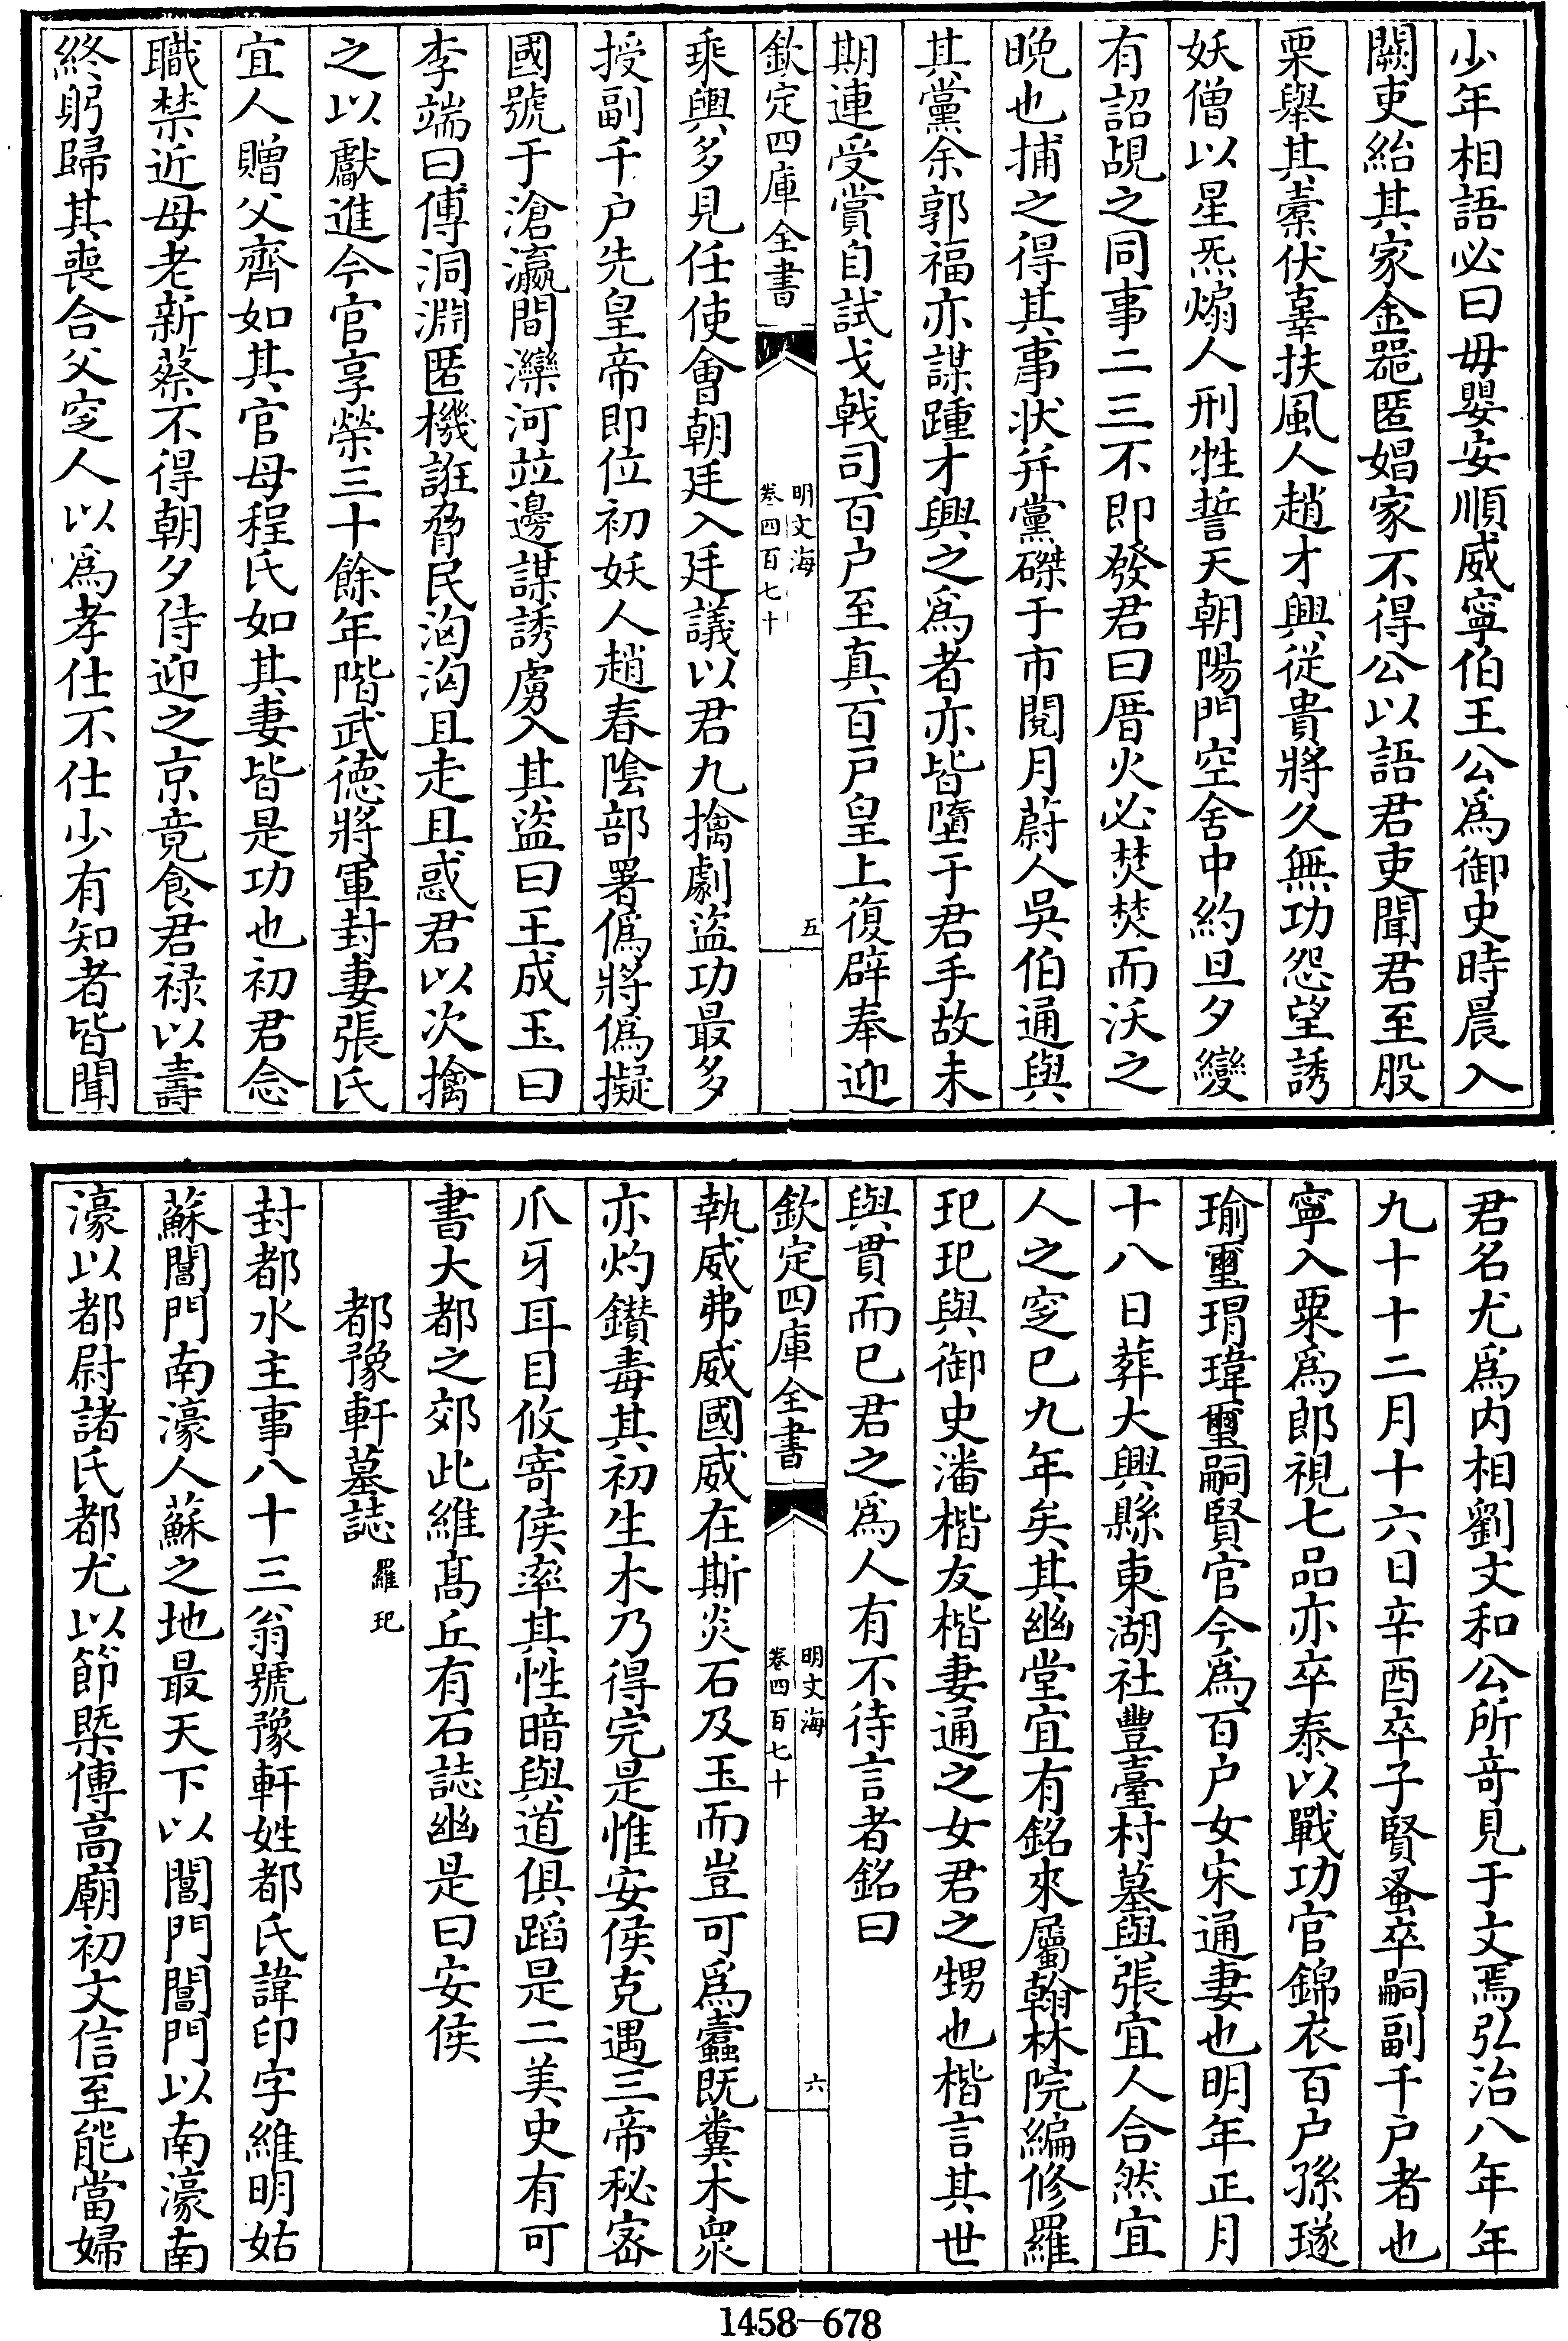 少年相語必曰毋嬰安順威寧伯王公爲御史時晨入
闕吏紿其家金噐匿娼家不得公以語君吏聞君至股
栗舉其橐伏辜扶風人趙才興從貴將久無功怨望誘
妖僧以星炁煽人刑牲誓天朝陽門空舍中約旦夕變
有詔覘之同事二三不即發君曰厝火必焚焚而沃之
晚也捕之得其事狀并黨磔于市閱月蔚人吳伯通與
其黨余郭福亦謀踵才興之爲者亦皆墮于君手故未
期連受賞自試戈戟司百户至真百戸皇上復辟奉迎
欽定四庫全書
明文海
卷四百七十
五
乘輿多見任使會朝廷入廷議以君九擒劇盜功最多
授副千户先皇帝即位初妖人趙春陰部署僞將僞擬
國號于滄瀛間灤河竝邊謀誘虜入其盜曰王成玉曰
李端曰傅洞淵匿機誑脅民洶洶且走且惑君以次擒
之以獻進今官享榮三十餘年階武徳將軍封妻張氏
宜人贈父齊如其官母程氏如其妻皆是功也初君念
職禁近母老新蔡不得朝夕侍迎之京竟食君禄以壽
終躬歸其喪合父窆人以爲孝仕不仕少有知者皆聞
君名尤爲内相劉文和公所竒見于文焉弘治八年年
九十十二月十六日辛酉卒子賢蚤卒嗣副千户者也
寧入粟爲郎視七品亦卒泰以戰功官錦衣百户孫璲
瑜璽瑁瑋璽嗣賢官今爲百户女宋通妻也明年正月
十八日葬大興縣東湖社豐臺村墓與張宜人合然宜
人之窆已九年矣其幽堂宜有銘來屬翰林院編修羅
玘玘與御史潘楷友楷妻通之女君之甥也楷言其世
與貫而已君之爲人有不待言者銘曰
欽定四庫全書
明文海
卷四百七十
六
執威弗威國威在斯炎石及玉而豈可爲蠹既糞木衆
亦灼鑽毒其初生木乃得完是惟安侯克遇三帝秘宻
爪牙耳目攸寄侯率其性暗與道俱蹈是二美史有可
書大都之郊此維髙丘有石誌幽是曰安侯
都豫軒墓誌 羅玘
封都水主事八十三翁號豫軒姓都氏諱印字維明姑
蘇閶門南濠人蘇之地最天下以閶門閶門以南濠南
濠以都尉諸氏都尤以節槩傅高廟初文信至能當婦
1458—678